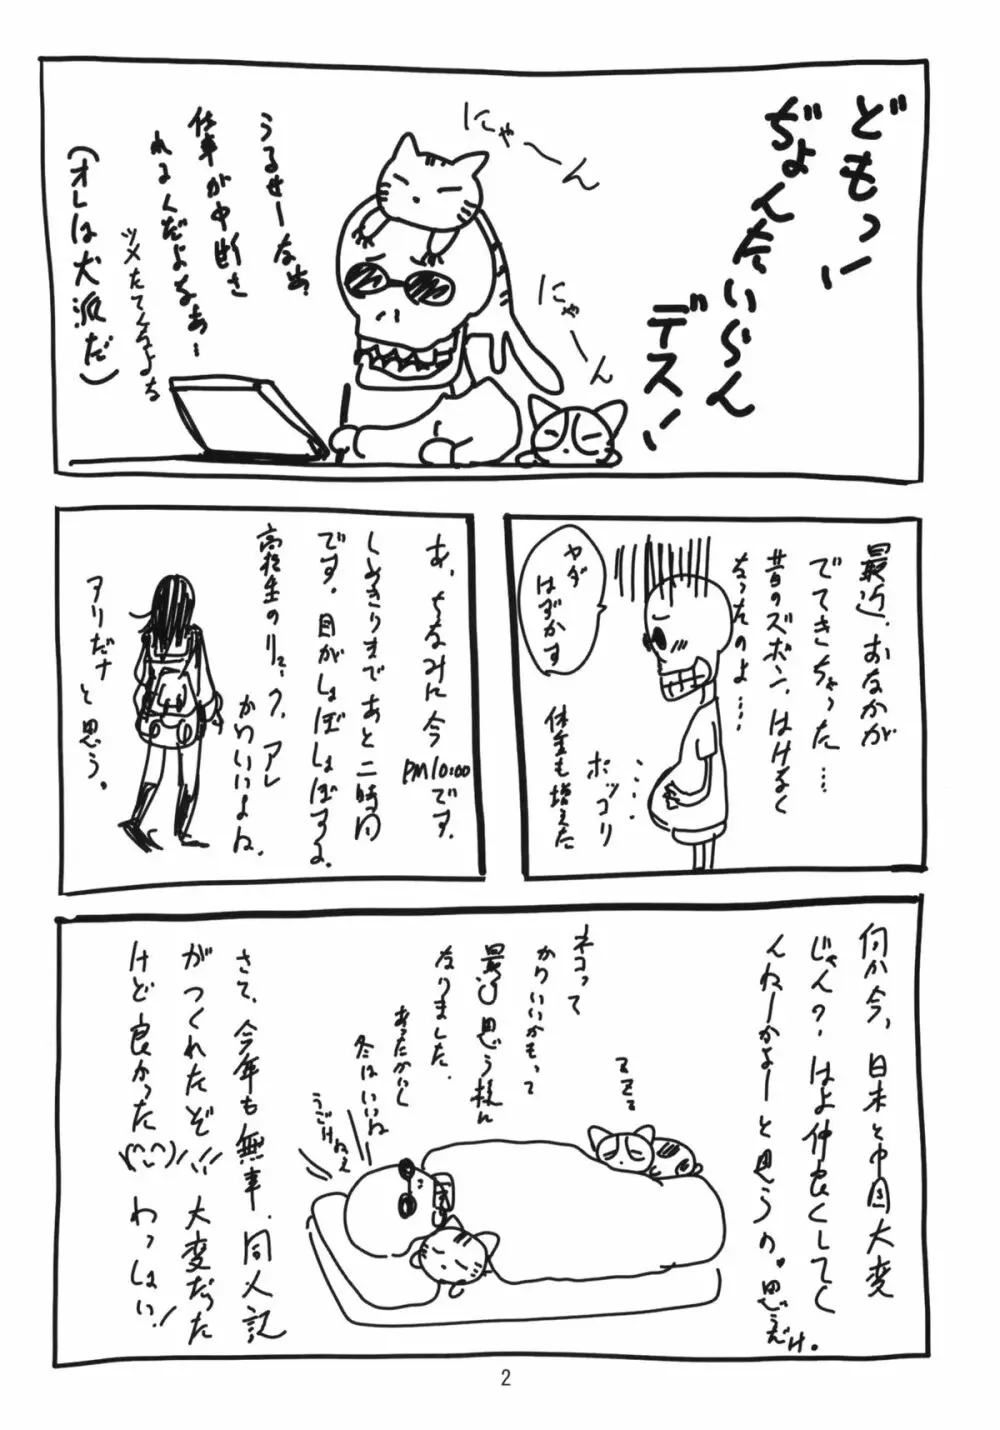 どもっ!!
ぢょんたいらん
デス!!
にゃ〜ん
にゃ〜ん
うるせーなぁ
仕事が中断さ
れるくだよなぁー
ツメたてんなよな
(オレは犬派だ)
最近、おなかが
でてきちゃった…
昔のズボン、はけなく
なったのよ……
ヤダ
はずかす
ポッコリ
体重も増えた
あ、ちなみに今
PM10:00です。
しめきりまであと二時間
です。目がしょぼしょぼするよ
高校生のリュック、アレ
かわいいよね。
アリだナ
と思う。
何か今、日本と中国大変
じゃん?はよ仲良くしてく
んねーかよーと思うの。思うだけ。
ネコって
かわいいかもって
最近思う様に
なりました。
あったかいし
冬はいいね
うごけねぇ
さて、今年も無事、同人記
がつくれたぞ!!大変だった
けど良かった(^-^)/
わっしょい!
2